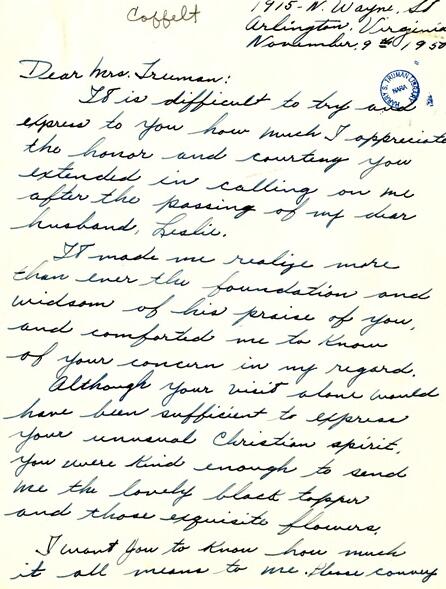 Coffelt
1915-N. Wayne, St
Arlington, Virginia
November, 9th, 1950
Dear Mrs. Truman:
It is difficult to try and
express to you how much I appreciate
the honor and courtesy you
extended in calling on me
after the passing of my dear
husband, Leslie.
It made me realize more
than ever the foundation and
widsom of his praise of you,
and comforted me to know
of your concern in my regard.
Although your visit alone would
have been sufficient to express
your unusual Christian spirit,
you were kind enough to send
me the lovely black topper
and those exquisite flowers.
I want you to know how much
it all means to me. Please convey
HARRY S. TRUMAN LIBRARY
NARA